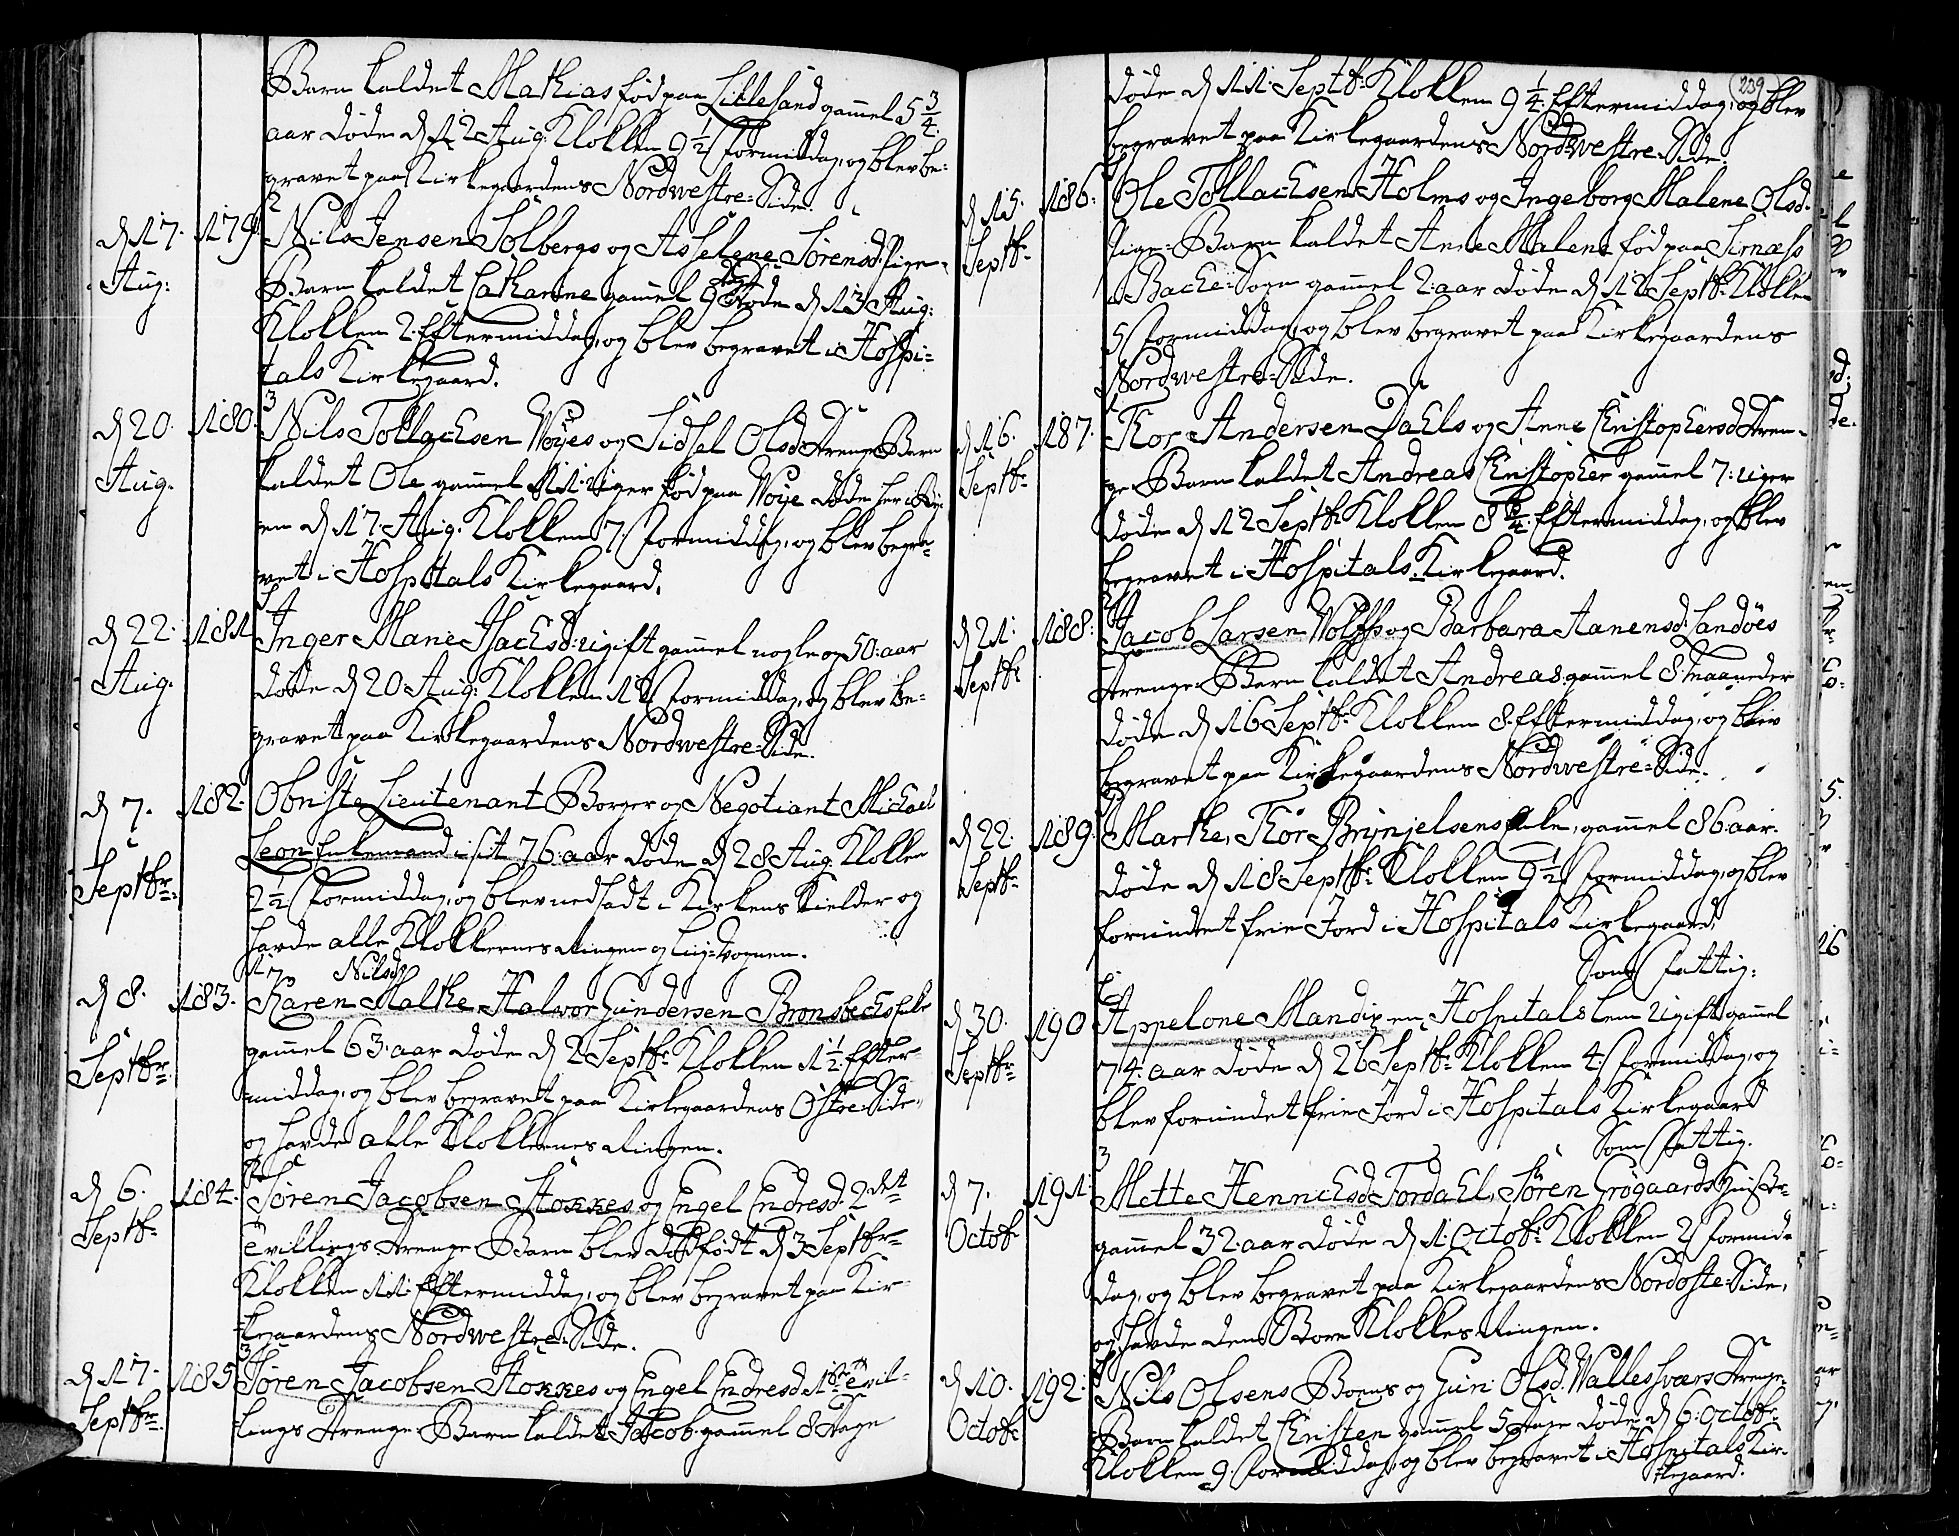 Barn kaldet Mathias fød paa Lillesand gammel 5 3/4
aar døde d 12 Aug. Klokken 9 1/2 Formiddag, og blev be-
gravet paa Kirkegaardens Nordwestre-Side.
d 17. Aug: 179. 2 Nils Jensen Solbergs og Asselene Sørensd: Pige-
Barn kaldet Catharine gammel 9 døde d 13 Aug:
Klokken 2. Eftermiddag, og blev begravet i Hospi-
tals Kirkegaard.
d 20. Aug. 180. 3 Nils Tollachsen Woyes og Sidsel Olsd Drenge Barn
kaldet Ole gammel 11. Uger fød paa Woye døde her i By-
en d 17. Aug. Klokken 7. Formiddag, og blev begra-
vet i Hospitals Kirkegaard.
d 22. Aug. 181. Inger Marie Isachsd: ugift gammel nogle og 50: aar
døde d 20. Aug: Klokken Formiddag, og blev be-
gravet paa Kirkegaardens Nordwestre-Side.
d 7. Septbr. 182. Obriste Lieutenant Borger og Negotiant Michael
Leon Enkemand i sit 76. aar døde d 28 Aug. Klokken
2 1/2 Formiddag, og blev nedsadt i Kirkens Kielder og
havde alle Klokkernes Ringen og Liig-Vognen.
17 Nilsd
d 8. Septbr. 183. Karen Malke, Halvor Gundersen Bronsbechs Enke
gammel 63. aar døde d 2 Septbr. Klokken 1 1/2 Efter-
middag, og blev begravet paa Kirkegaardens Østre-Side
og havde alle Klokkernes Ringen.
d 6. Septbr. 184. Søren Jacobsen Stokkes og Engel Endresd. 2det
Tvillings Drenge Barn blev dødfødt d 3 Septbr.
Klokken 11. Eftermiddag, og blev begravet paa Kir-
kegaardens Nordwestre-Side.
d 17. Septbr. 185. 3 Søren Jacobsen Stokkes og Engel Endresd. 1ste Tvil-
lings Drenge Barn kaldet Jacob gammel 8 Dage
239
døde d 11. Septbr. Klokken 9 1/4 Eftermiddag, og blev
begravet paa Kirkegaardens Nordwestre-Side.
d 15. Septbr. 186. Ole Tollachsen Holms og Ingeborg Malene Olsd.
Pige-Barn kaldet Anne Malene fød paa Sirness
i Bache-Sogn gammel 2. aar døde d 12 Septbr. Klokken
5 Formiddag, og blev begravet paa Kirkegaardens
Nordwestre-Side.
d 16. Septbr. 187. Thor Andersen Dahls og Anne Christophersd Dren-
ge Barn kaldet Andreas Christopher gammel 7: Uger
døde d 12 Septbr. Klokken 8 3/4 Eftermiddag, og blev
begravet i Hospitals Kirkegaard.
d 21. Septbr 188. Jacob Larsen Wolffs og Barbara Aanensd. Sandøes
Drenge Barn kaldet Andreas gammel 8 Maaneder
døde d 16 Septbr. Klokken 8. Eftermiddag, og blev
begravet paa Kirkegaardens Nordwestre-Side.
d 22. Septbr. 189. Marthe, Thor Brynjelsens Enke, gammel 86. aar.
døde d 18 Septbr. Klokken 9 1/2 Formiddag, og blev
forundt frie Jord i Hospitals Kirkegaard,
Som Fattig:
d 30. Septbr. 190 Appelone Mandix en Hospitals Lem ugift gammel
74. aar døde d 26 Septbr. Klokken 4. Formiddag, og
blev forundet frie Jord i Hospitals Kirkegaard
Som Fattig.
d 7. Octobr 191. 3 Mette Hennichsd Tordahl, Søren Grøgaards Hustr-
gammel 32. aar døde d 1. Octobr. Klokken 2 Formid-
dag, og blev begravet paa Kirkegaardens Nordoste-Side,
og havde den store Klokkes Ringen.
d 10. Octobr 192. Nils Olsens Boens og Guri Olsd. Wallesværs Drenge-
Barn kaldet Christen gammel 5 Dage døde d 6. Octobr.
Klokken 9. Formiddag, og blev begravet i Hospitals Kir-
kegaard.